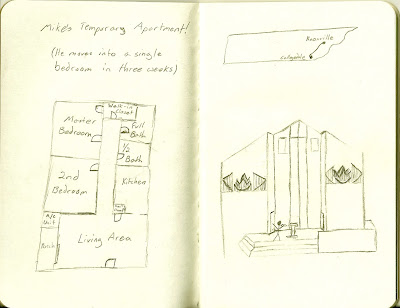 Mike's Temporary Apartment!
(He moves into a single
bedroom in three weeks)
Walk-in
Closet
Master
Bedroom
Full
Bath
1/2
Bath
2nd
Bedroom
Kitchen
A/C
Unit
Porch
Living Area
Knoxville
Collegedale